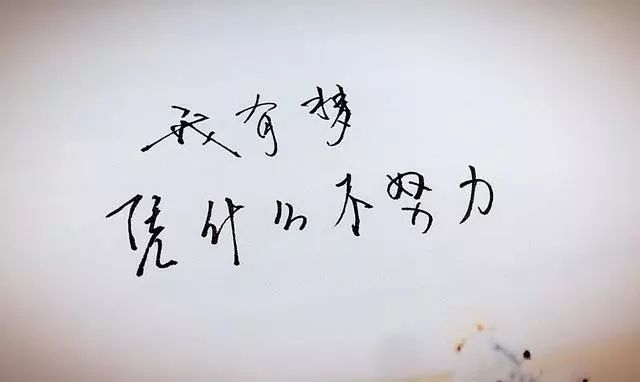 我有梦
凭什么不努力